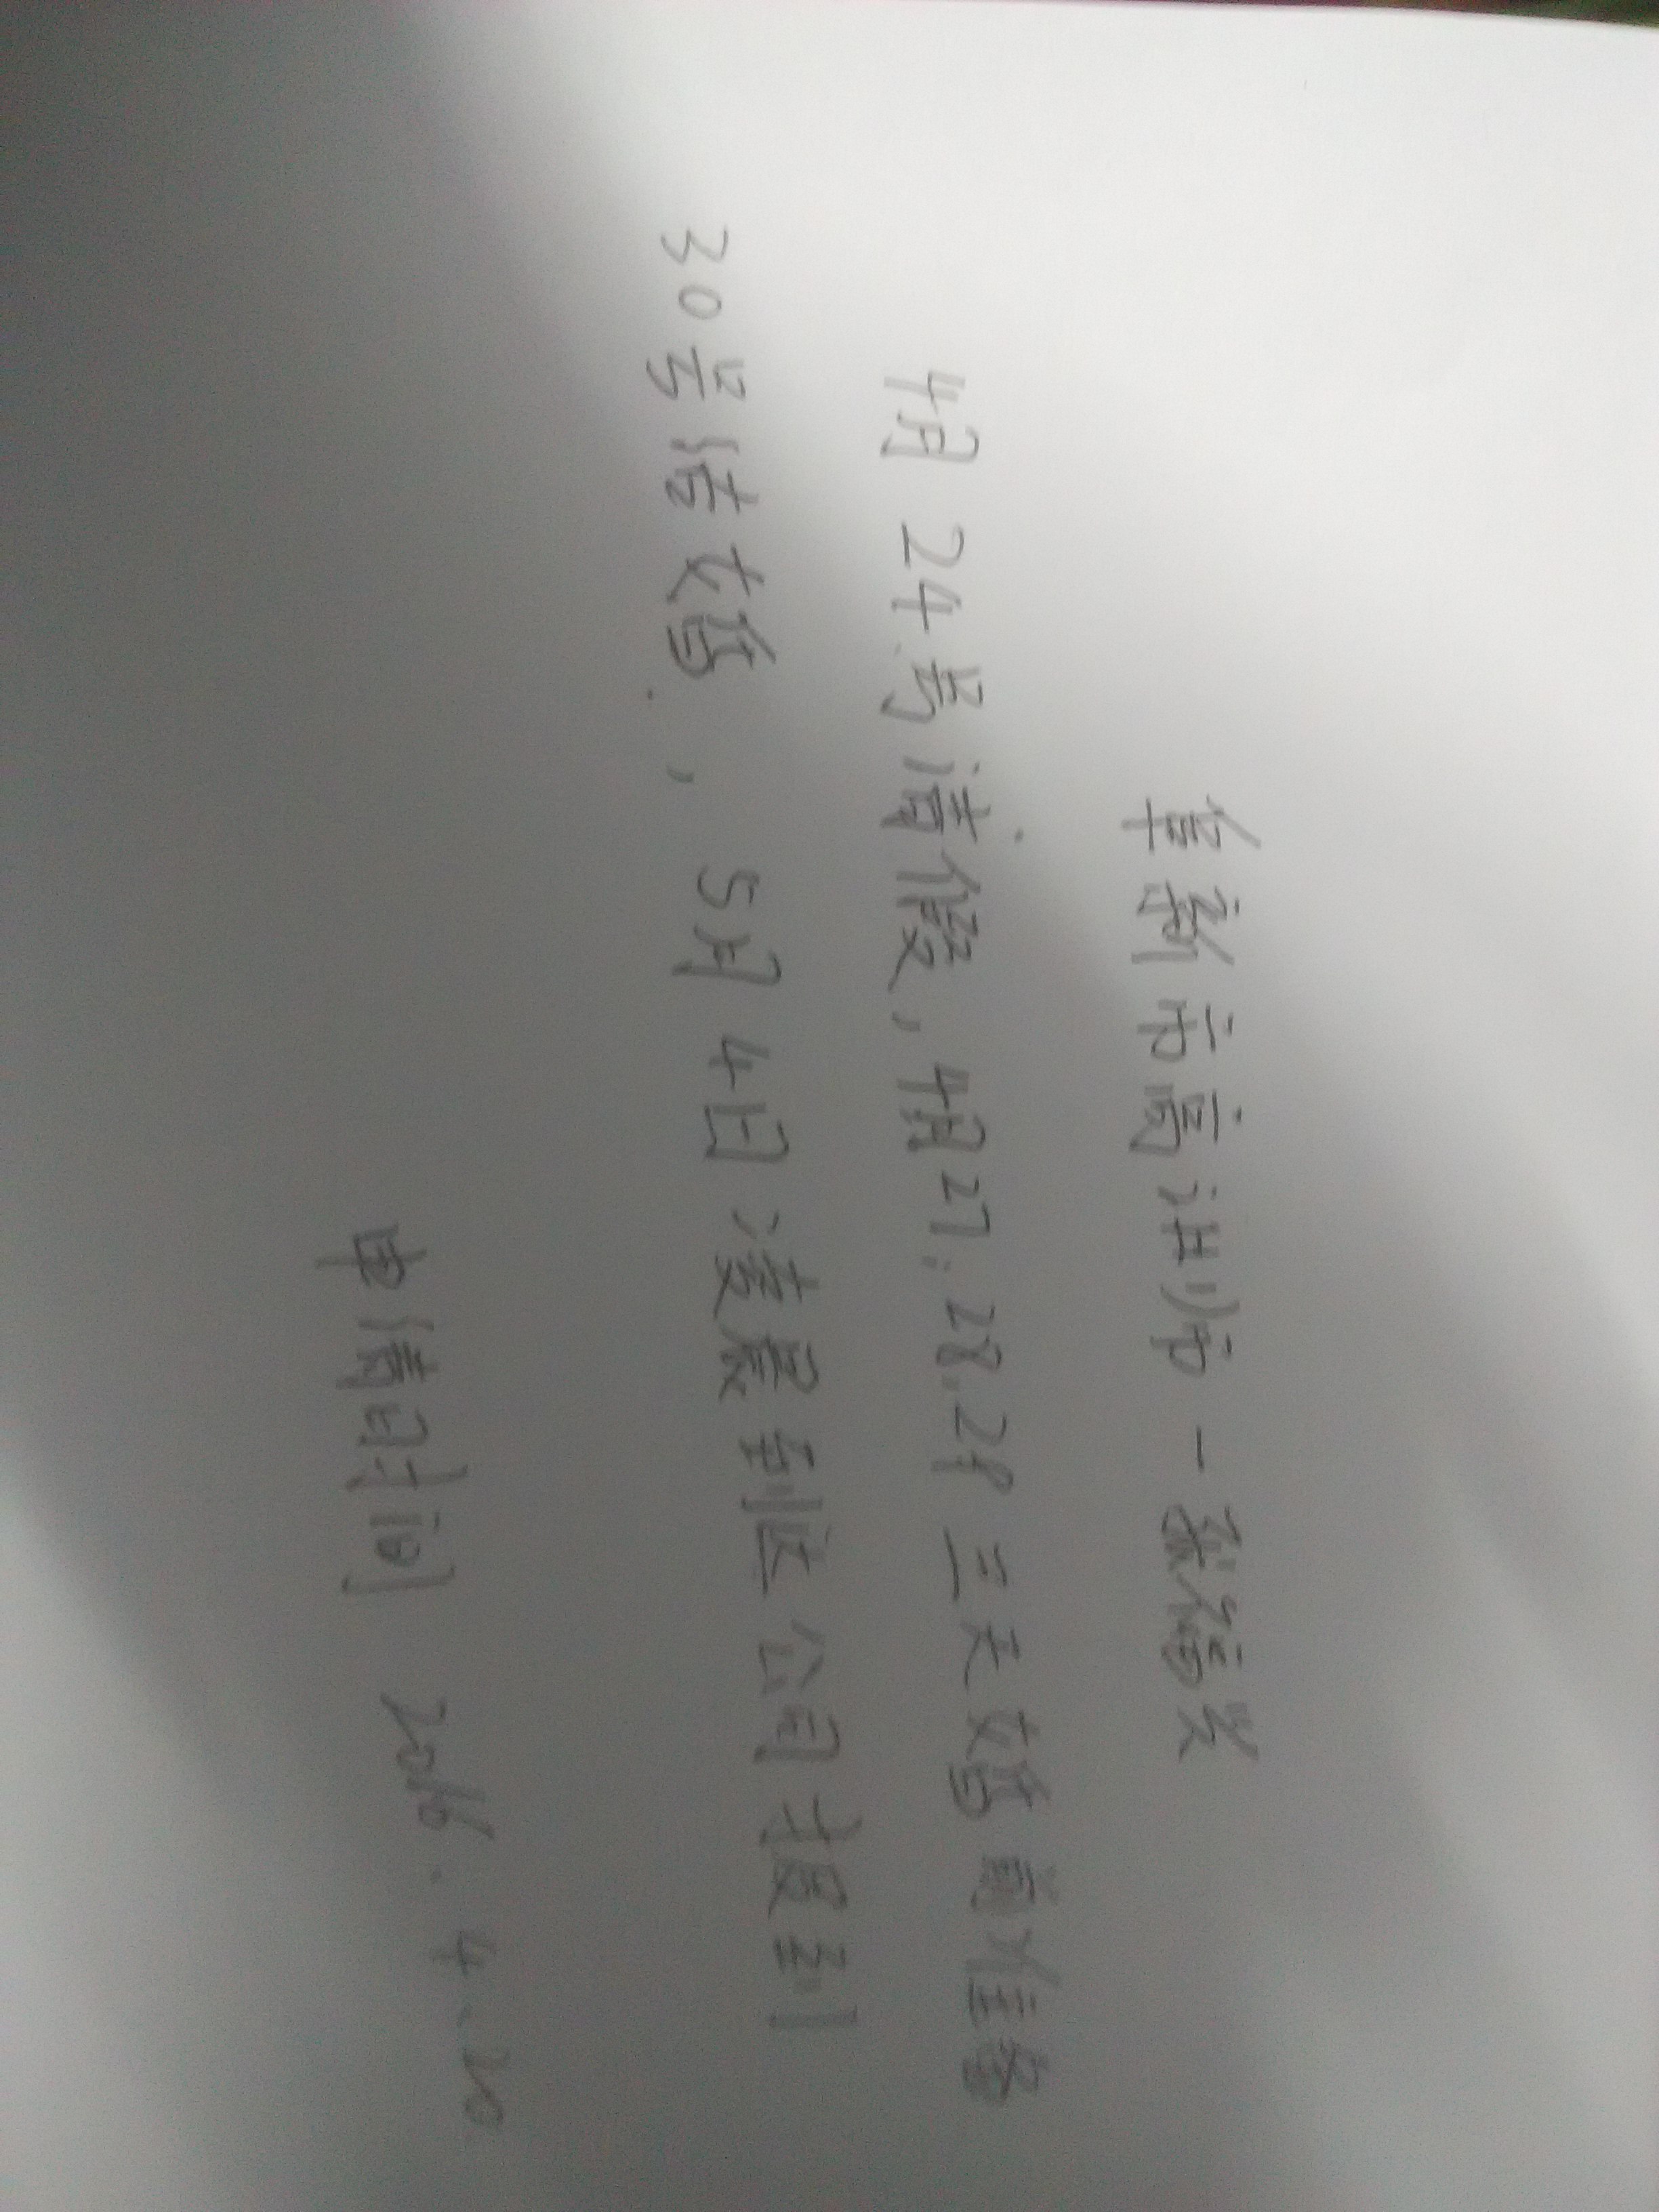 阜新市高讲师一裴縉兴
4月24号请假，4月27.28.29三天婚前准备
30号结婚.，5月4日凌晨到达公司报到
申请时间 2016.4.20